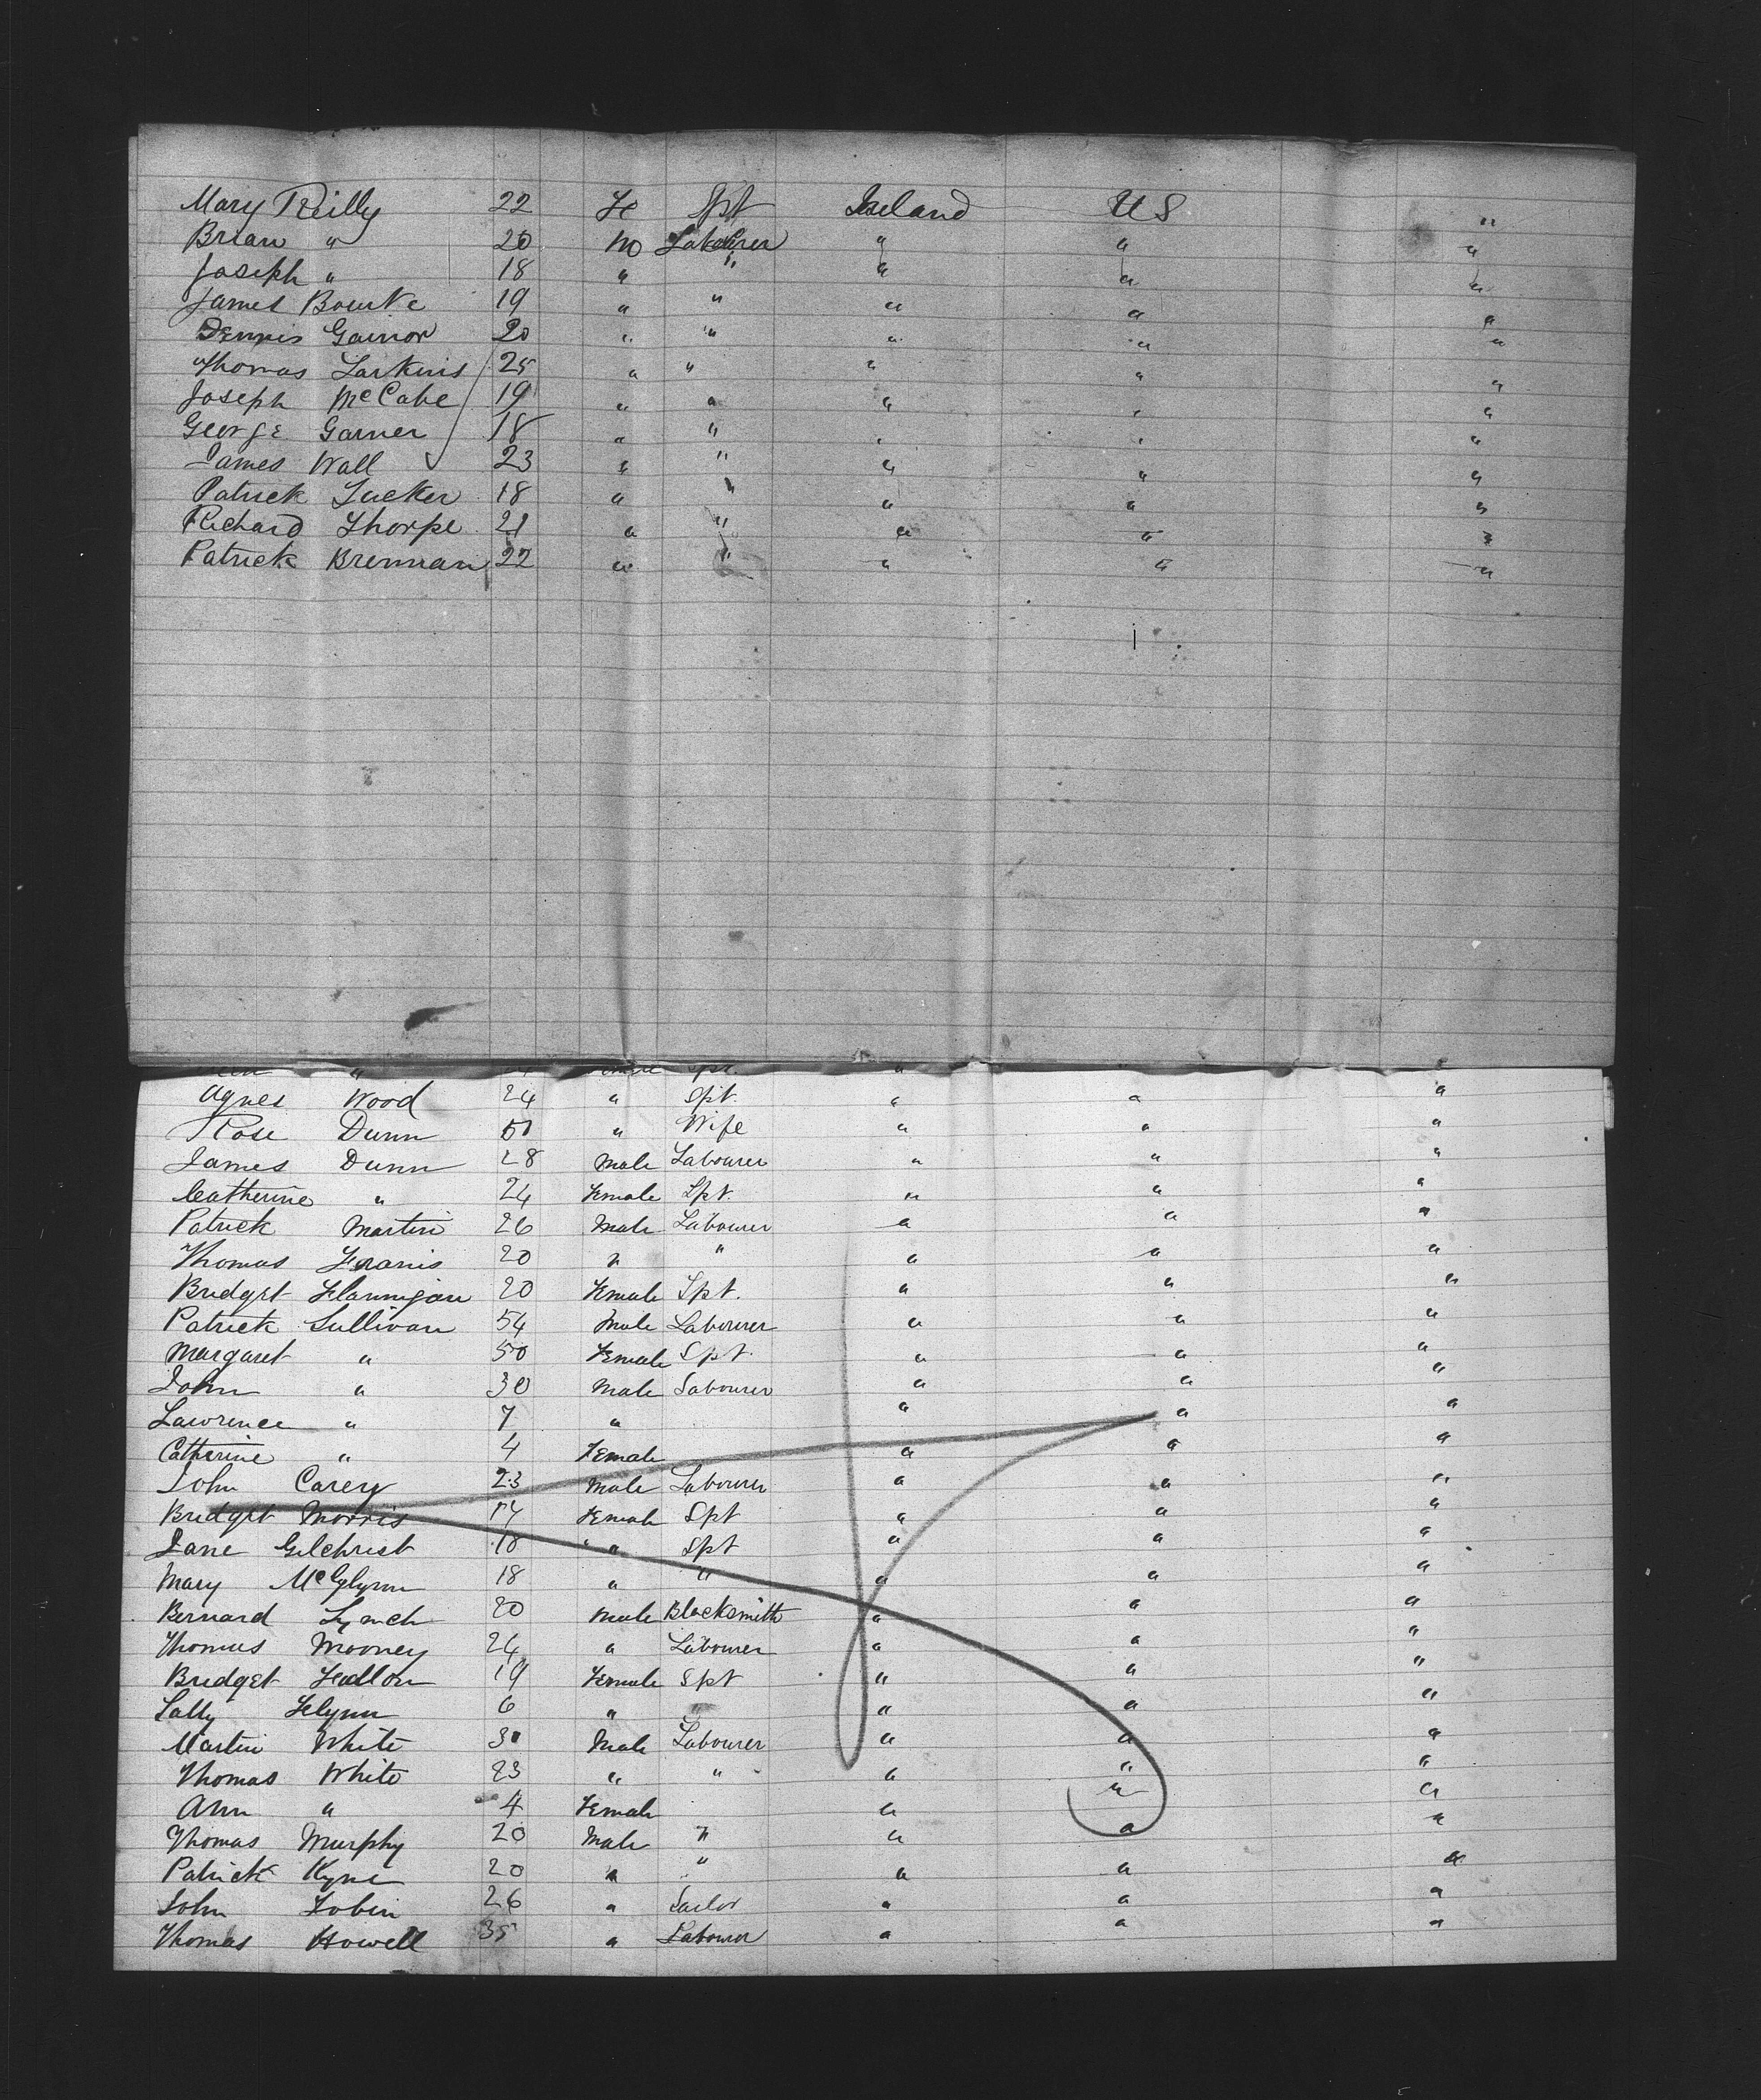 Mary Reilly 22 Fe Spt Ireland US "
Brian " 20 M Labourer " " "
Joseph " 18 " " " " "
James Bourke 19 " " " " "
Dennis Gainor 20 " " " " "
Thomas Larkins 25 " " " " "
Joseph McCabe 19 " " " " "
George Garner 18 " " " " "
James Wall 23 " " " " "
Patrick Tucker 18 " " " " "
Richard Thorpe 21 " " " " "
Patrick Brennan 22 " " " " "
Agnes Wood 24 " Spt. " " "
Rose Dunn 50 " Wife " " "
James Dunn 28 Male Labourer " " "
Catherine " 24 Female Spt. " " "
Patrick Martin 26 Male Labourer " " "
Thomas 20 " " " " "
Bridget Flannigan 20 Female Spt. " " "
Patrick Sullivan 54 Male Labourer " " "
Margaret " 50 Female Spt. " " "
John " 30 Male Labourer " " "
Lawrence " 7 " " " "
Catherine " 4 Female " " "
John Carey 23 Male Labourer " " "
Bridget Morris Female Spt " " "
Jane Gilchrist 18 " Spt " " "
Mary McGlynn 18 " " " " "
Bernard Lynch 20 Male Blacksmith " " "
Thomas Mooney 24 " Labourer " " "
Bridget Fallon 19 Female Spt " " "
Sally Flynn 6 " " " "
Martin White 30 Male Labourer " " "
Thomas White 23 " " " " "
Ann " 4 Female " " "
Thomas Murphy 20 Male " " " "
Patrick Kyne 20 " " " " "
John Tobin 26 " " " "
Thomas Howell 35 " Labourer " " "